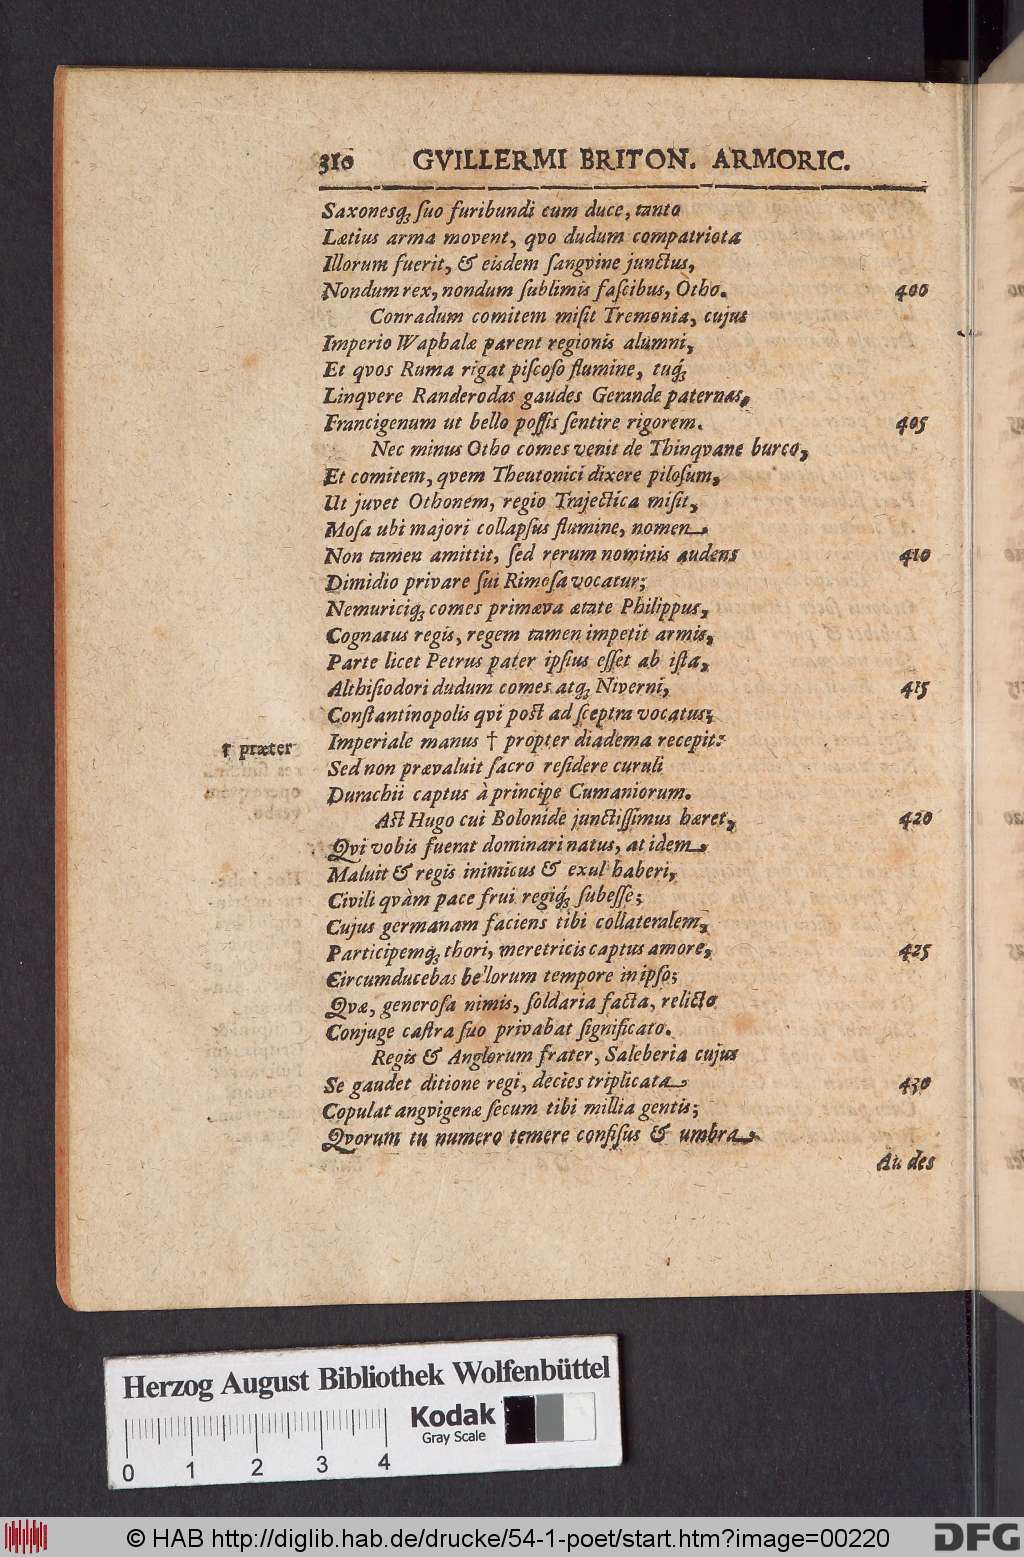 310 GVILLERMI BRITON. ARMORIC.
Saxonesq; ſuo furibundi cum duce, tanto
Lætius arma movent, qvo dudum compatriota
Illorum fuerit, & eisdem ſangvine junctus,
Nondum rex, nondum ſublimis faſcibus, Otho. 400
Conradum comitem miſit Tremonia, cujus
Imperio Waphalæ parent regionis alumni,
Et qvos Ruma rigat piſcoſo flumine, tuq́;
Linqvere Randerodas gaudes Gerande paternas,
Francigenum ut bello poſſis ſentire rigorem. 405
Nec minus Otho comes venit de Thinqvane burco,
Et comitem, qvem Theutonici dixere piloſum,
Ut juvet Othonem, regio Trajectica miſit,
Moſa ubi majori collapſus flumine, nomen
Non tamen amittit, ſed rerum nominis audens 410
Dimidio privare ſui Rimoſa vocatur;
Nemuriciq; comes primæva ætate Philippus,
Cognatus regis, regem tamen impetit armis,
Parte licet Petrus pater ipſius eſſet ab iſta,
Althiſiodori dudum comes atq; Niverni, 415
Conſtantinopolis qvi poſt ad ſceptra vocatus;
† præter
Imperiale manus † propter diadema recepit:
Sed non prævaluit ſacro reſidere curuli
Durachii captus à principe Cumaniorum.
Aſt Hugo cui Bolonide junctiſſimus hæret, 420
Qvi vobis fuerat dominari natus, at idem
Maluit & regis inimicus & exul haberi,
Civili qvàm pace frui regiq́; ſubeſſe;
Cujus germanam faciens tibi collateralem,
Participemq́; thori, meretricis captus amore, 425
Circumducebas bellorum tempore in ipſo;
Qvæ, generoſa nimis, ſoldaria facta, relicto
Conjuge caſtra ſuo privabat ſignificato.
Regis & Anglorum frater, Saleberia cujus
Se gaudet ditione regi, decies triplicata 430
Copulat angvigenæ ſecum tibi millia gentis;
Qvorum tu numero temere confiſus & umbra
Audes
Herzog August Bibliothek Wolfenbüttel
Kodak
Gray Scale
0 1 2 3 4
© HAB http://diglib.hab.de/drucke/54-1-poet/start.htm?image=00220
DFG